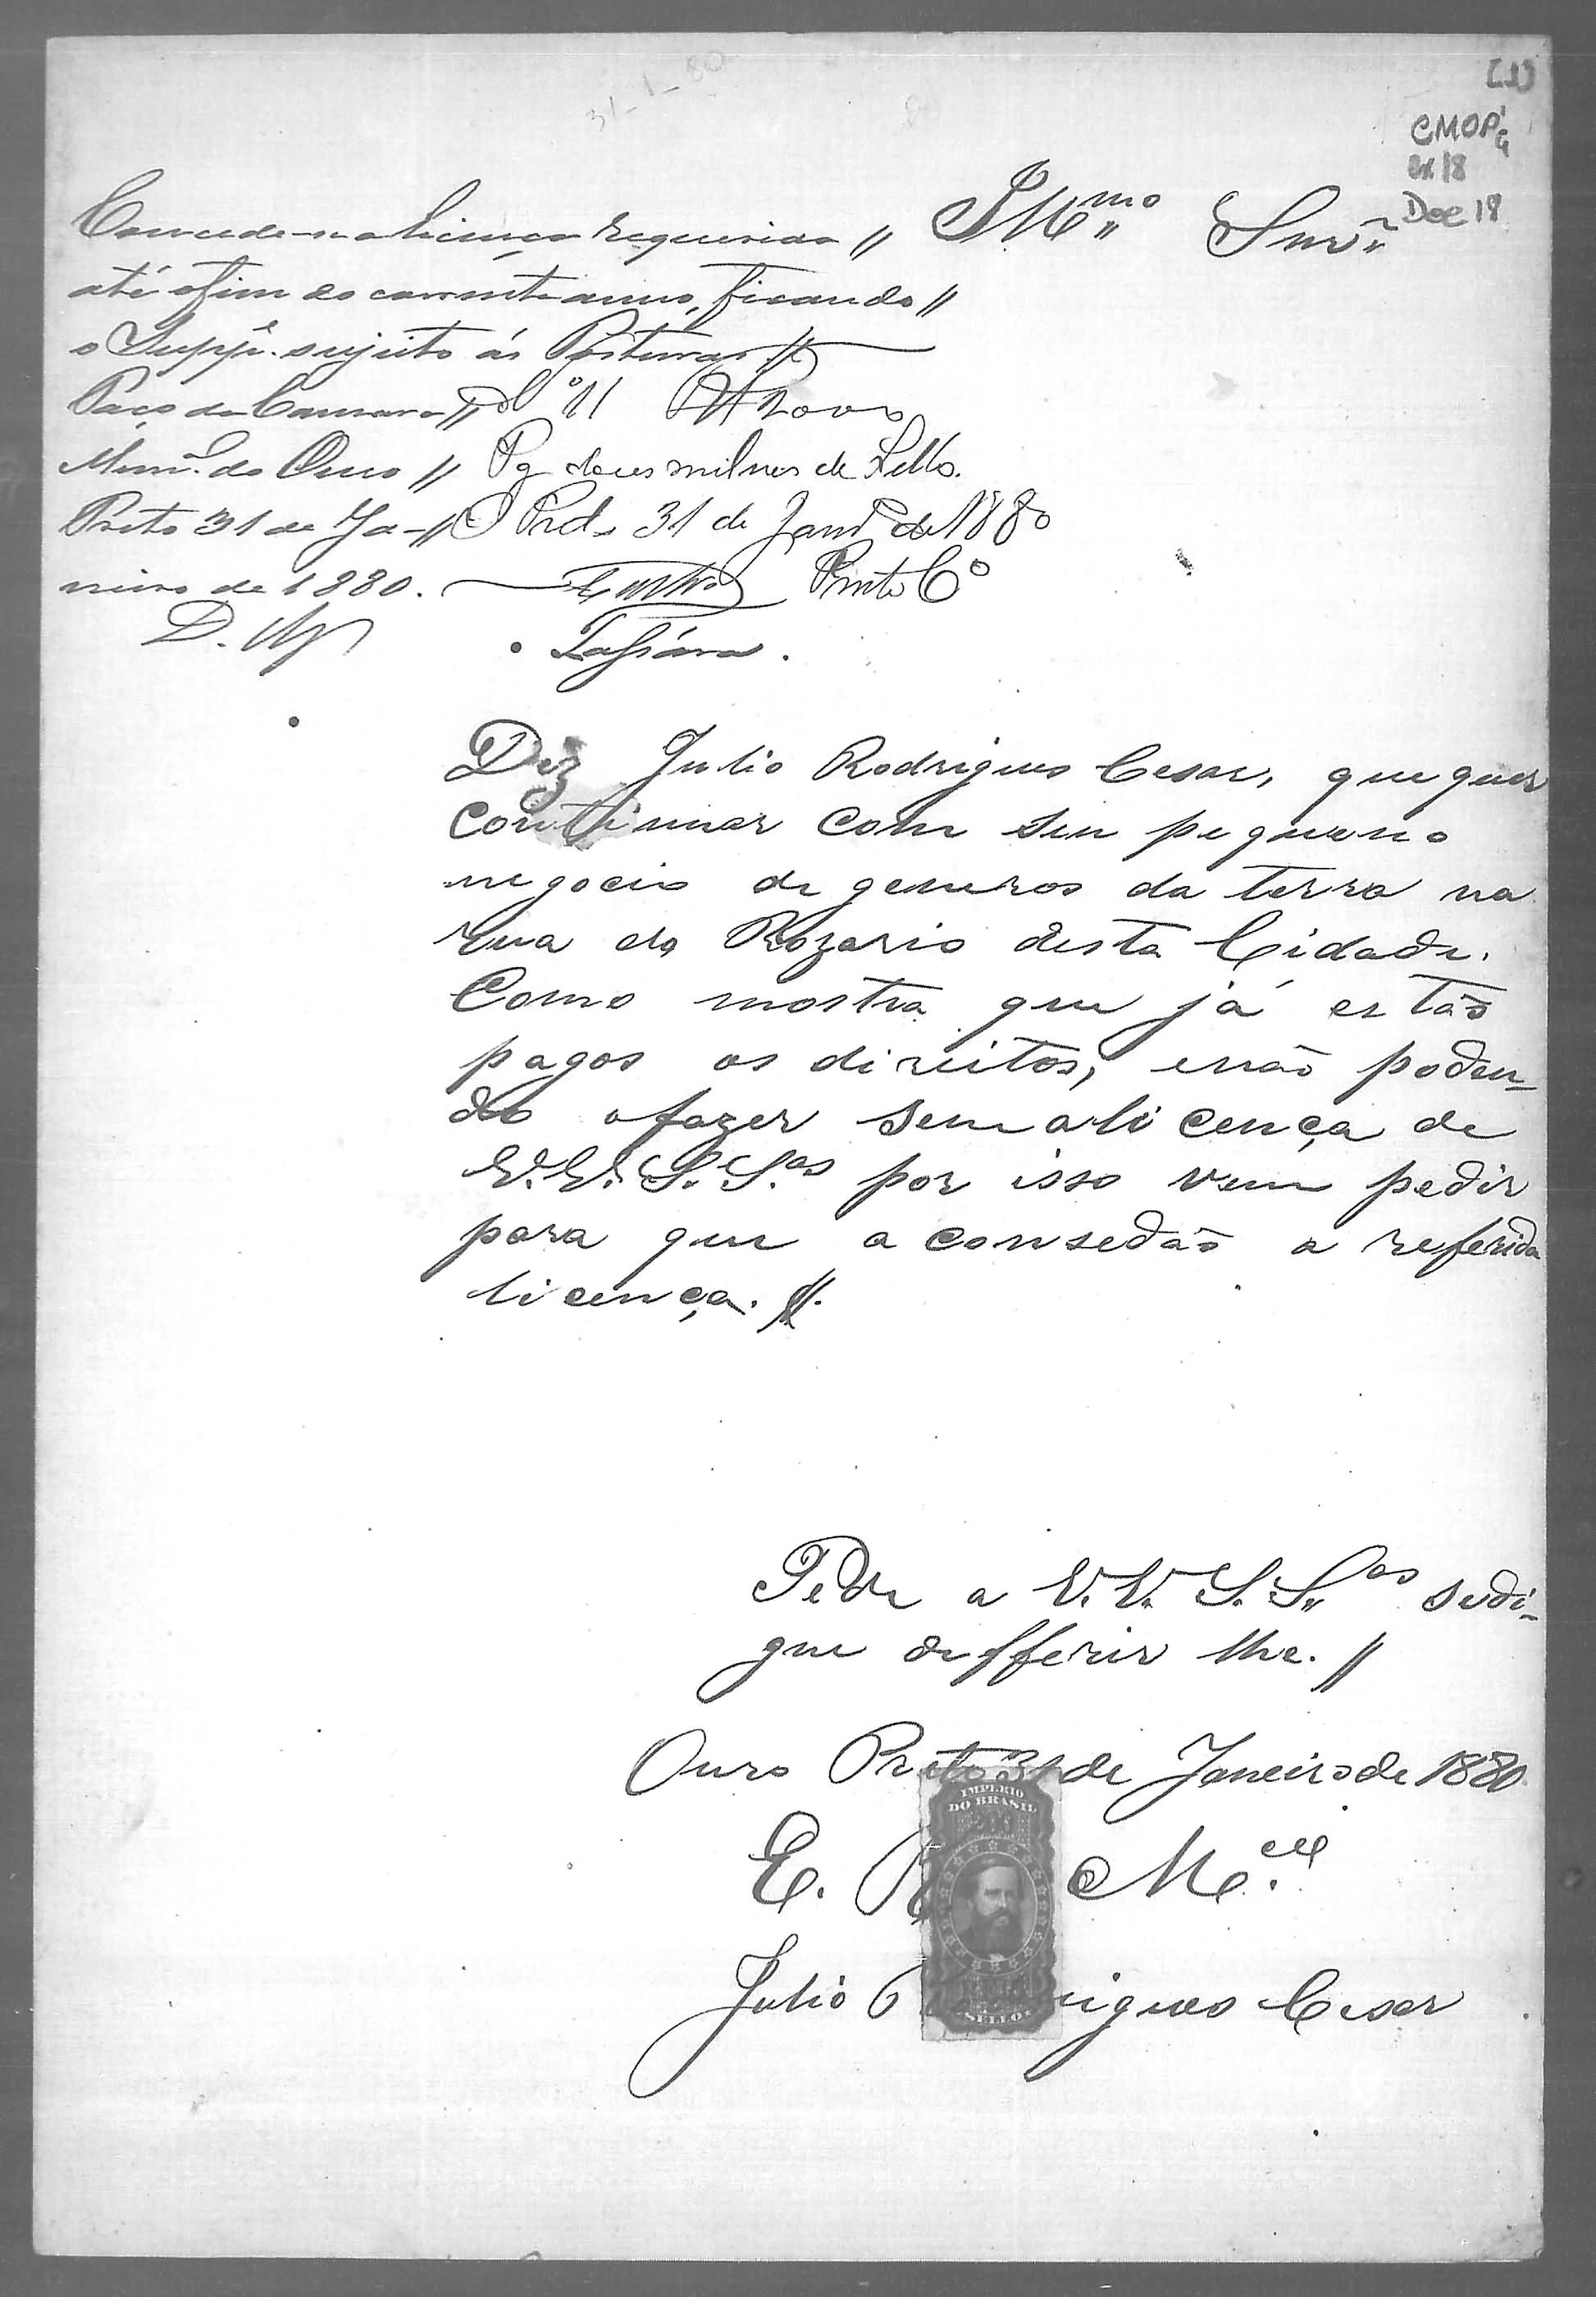 31-1-80
(1)
CMOP
Cx 18
Doc 18
Illmo Snr.
Concede-se a licença requerida //
até o fim do corrente anno, ficando //
o Suppe. sujeito ás Posturas //
Paço da Camara //
Munal. do Ouro //
Preto 31 de Ja- //
neiro de 1880.
Nº 11
Pg dous mil reis de Sello.
O Preto 31 de Janro de 1880
Pinto Co
Diz Julio Rodrigues Cesar, que quer
continuar com seu pequeno
negocio de generos da terra na
rua do Rozario desta Cidade.
Como mostra que já estão
pagos os direitos, e não poden-
do o fazer sem a licença de
V.V. S.Sas por isso vem pedir
para que a consedão a referida
licença. //.
Pede a V.V. S.Sas se di-
gne defferir lhe. //
Ouro Preto 31 de Janeiro de 1880
E. R. Mce
IMPERIO
DO BRASIL
SELLO
Julio Rodrigues Cesar